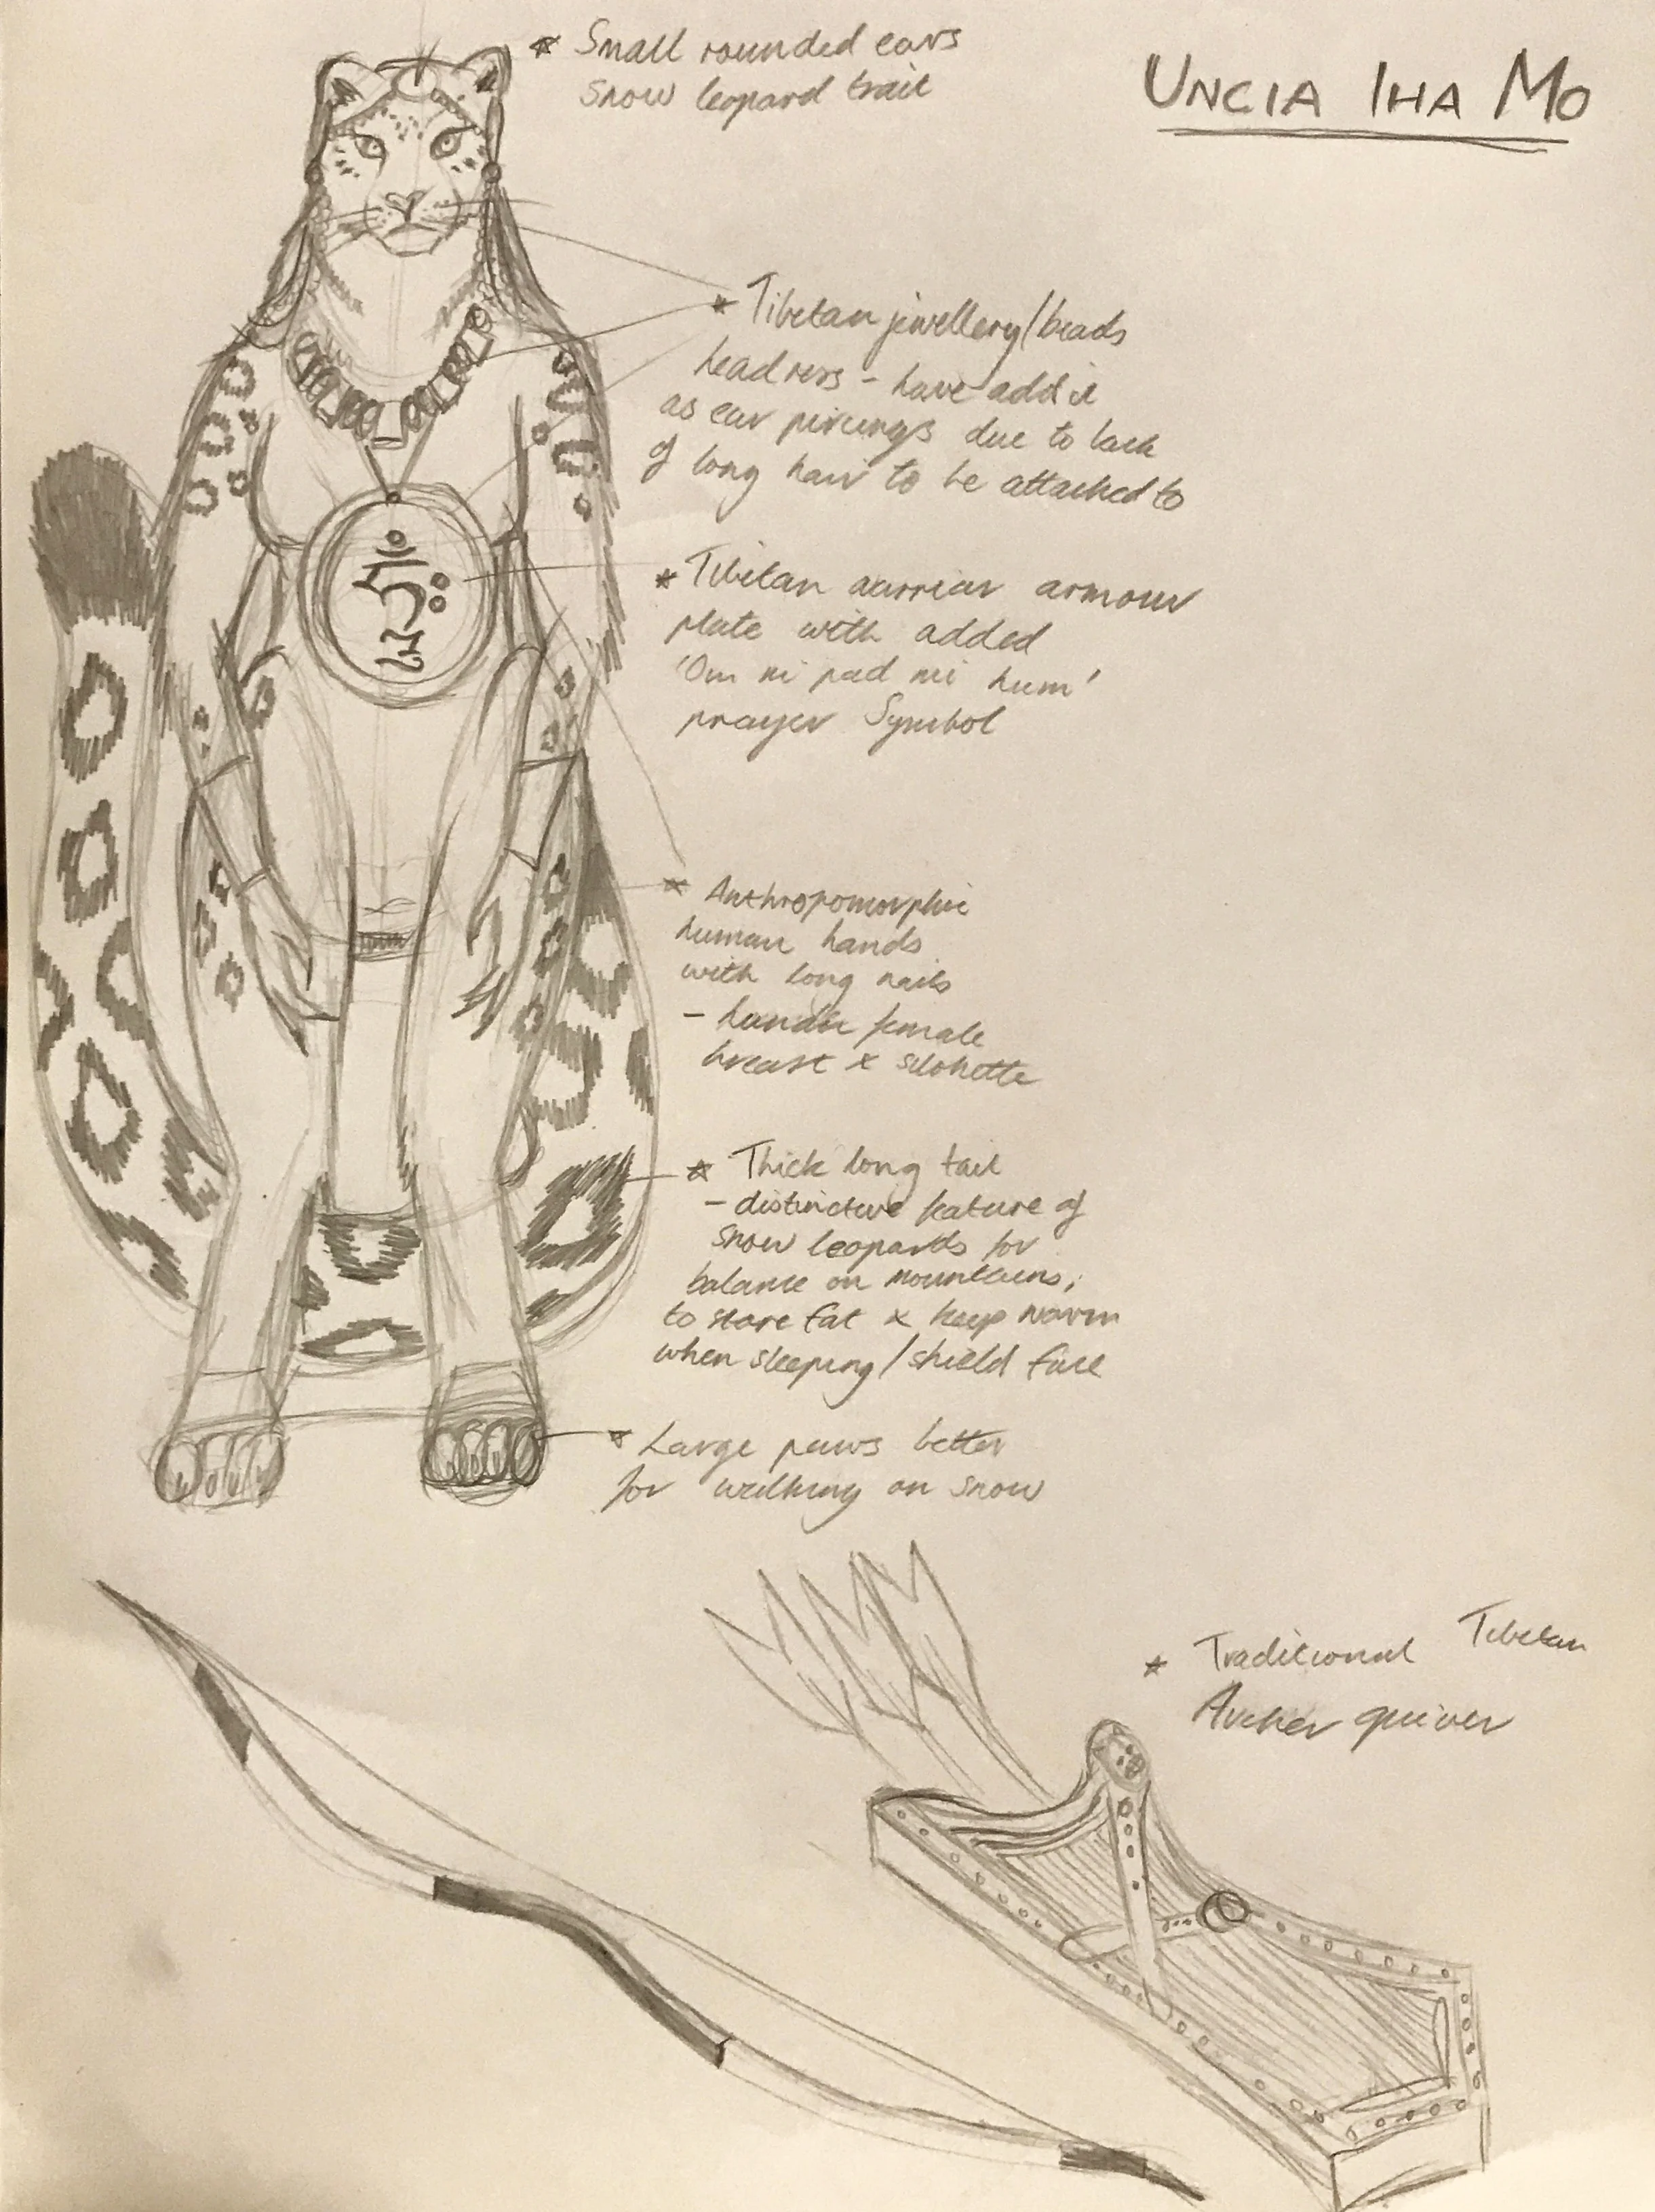 UNCIA IHA MO
* Small rounded ears
Snow leopard trait
* Tibetan jewellery/beads
headress - have add it
as ear pircings due to lack
of long hair to be attached to
* Tibetan warrior armour
plate with added
'Om ni pad mi hum'
prayer Symbol
* Anthropomorphic
human hands
with long nails
- human female
breast & silohette
* Thick long tail
- distinctive feature of
snow leopards for
balance on mountains,
to store fat & keep warm
when sleeping/shield face
* Large paws better
for walking on snow
* Traditional Tibetan
Archer quiver